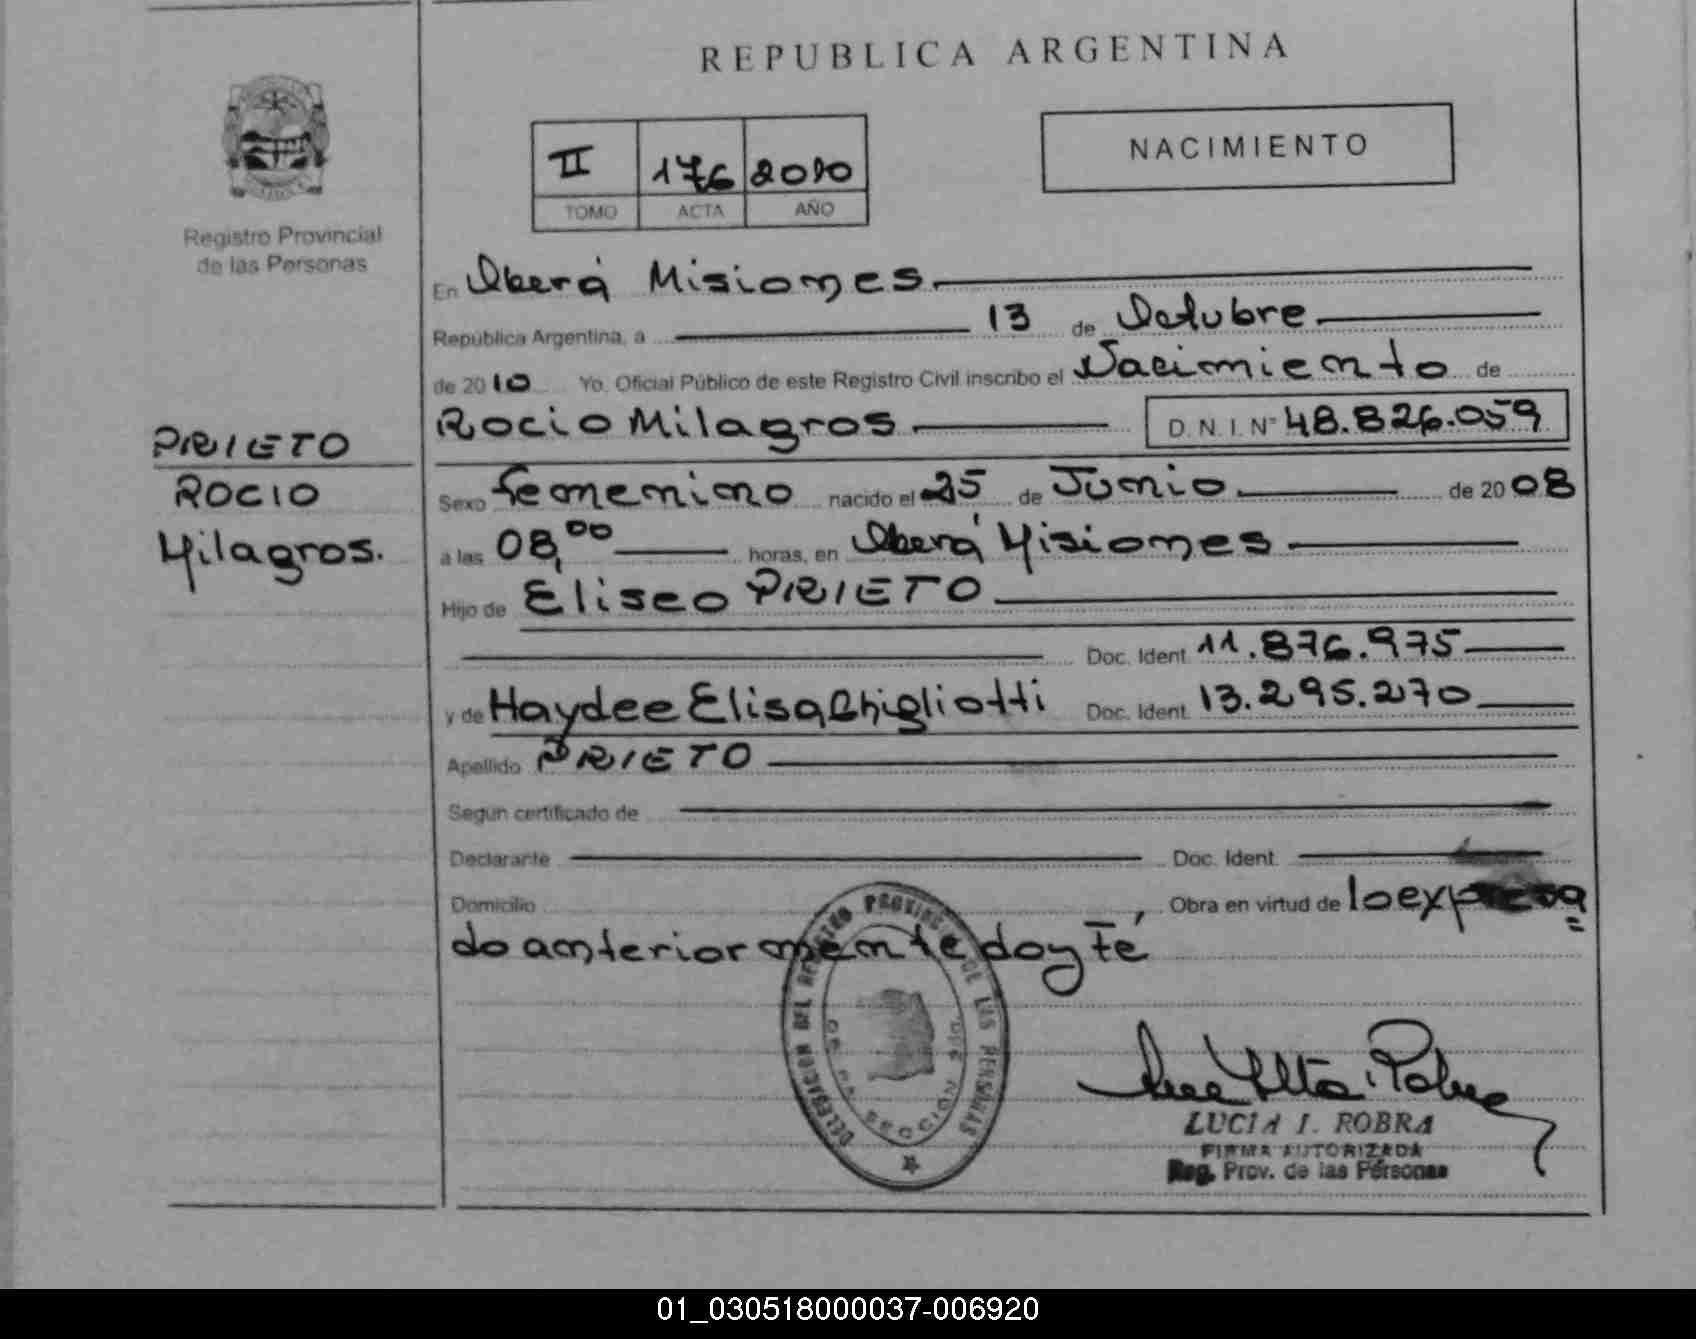 REPUBLICA ARGENTINA
NACIMIENTO
II 176 2010
TOMO ACTA AÑO
Registro Provincial
de las Personas
PRIETO
ROCIO
Milagros.
En Oberá Misiones
República Argentina, a 13 de Octubre
de 2010 Yo, Oficial Público de este Registro Civil inscribo el Nacimiento de
Rocio Milagros D.N.I. Nº 48.826.059
Sexo femenino nacido el 25 de Junio de 2008
a las 08,00 horas, en Oberá Misiones
Hijo de Eliseo PRIETO
Doc. Ident 11.876.975
y de Haydee Elisa Ghigliotti Doc. Ident. 13.295.270
Apellido PRIETO
Según certificado de
Declarante Doc. Ident.
Domicilio , Obra en virtud de lo expresa=
do anteriormente doy fé
DELEGACION DEL REGISTRO PROVINCIAL DE LAS PERSONAS
SECCION 2da.
LUCIA I. ROBRA
FIRMA AUTORIZADA
Reg. Prov. de las Personas
01_030518000037-006920